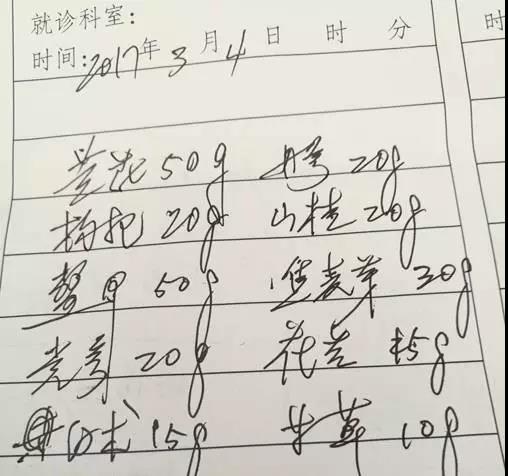 就诊科室:
时间:2017年3月4日 时 分 时
黄芪 50g 丹参 20g
枸杞 20g 山楂 20g
鳖甲 50g 麦芽 30g
党参 20g 15g
白术 15g 甘草 10g